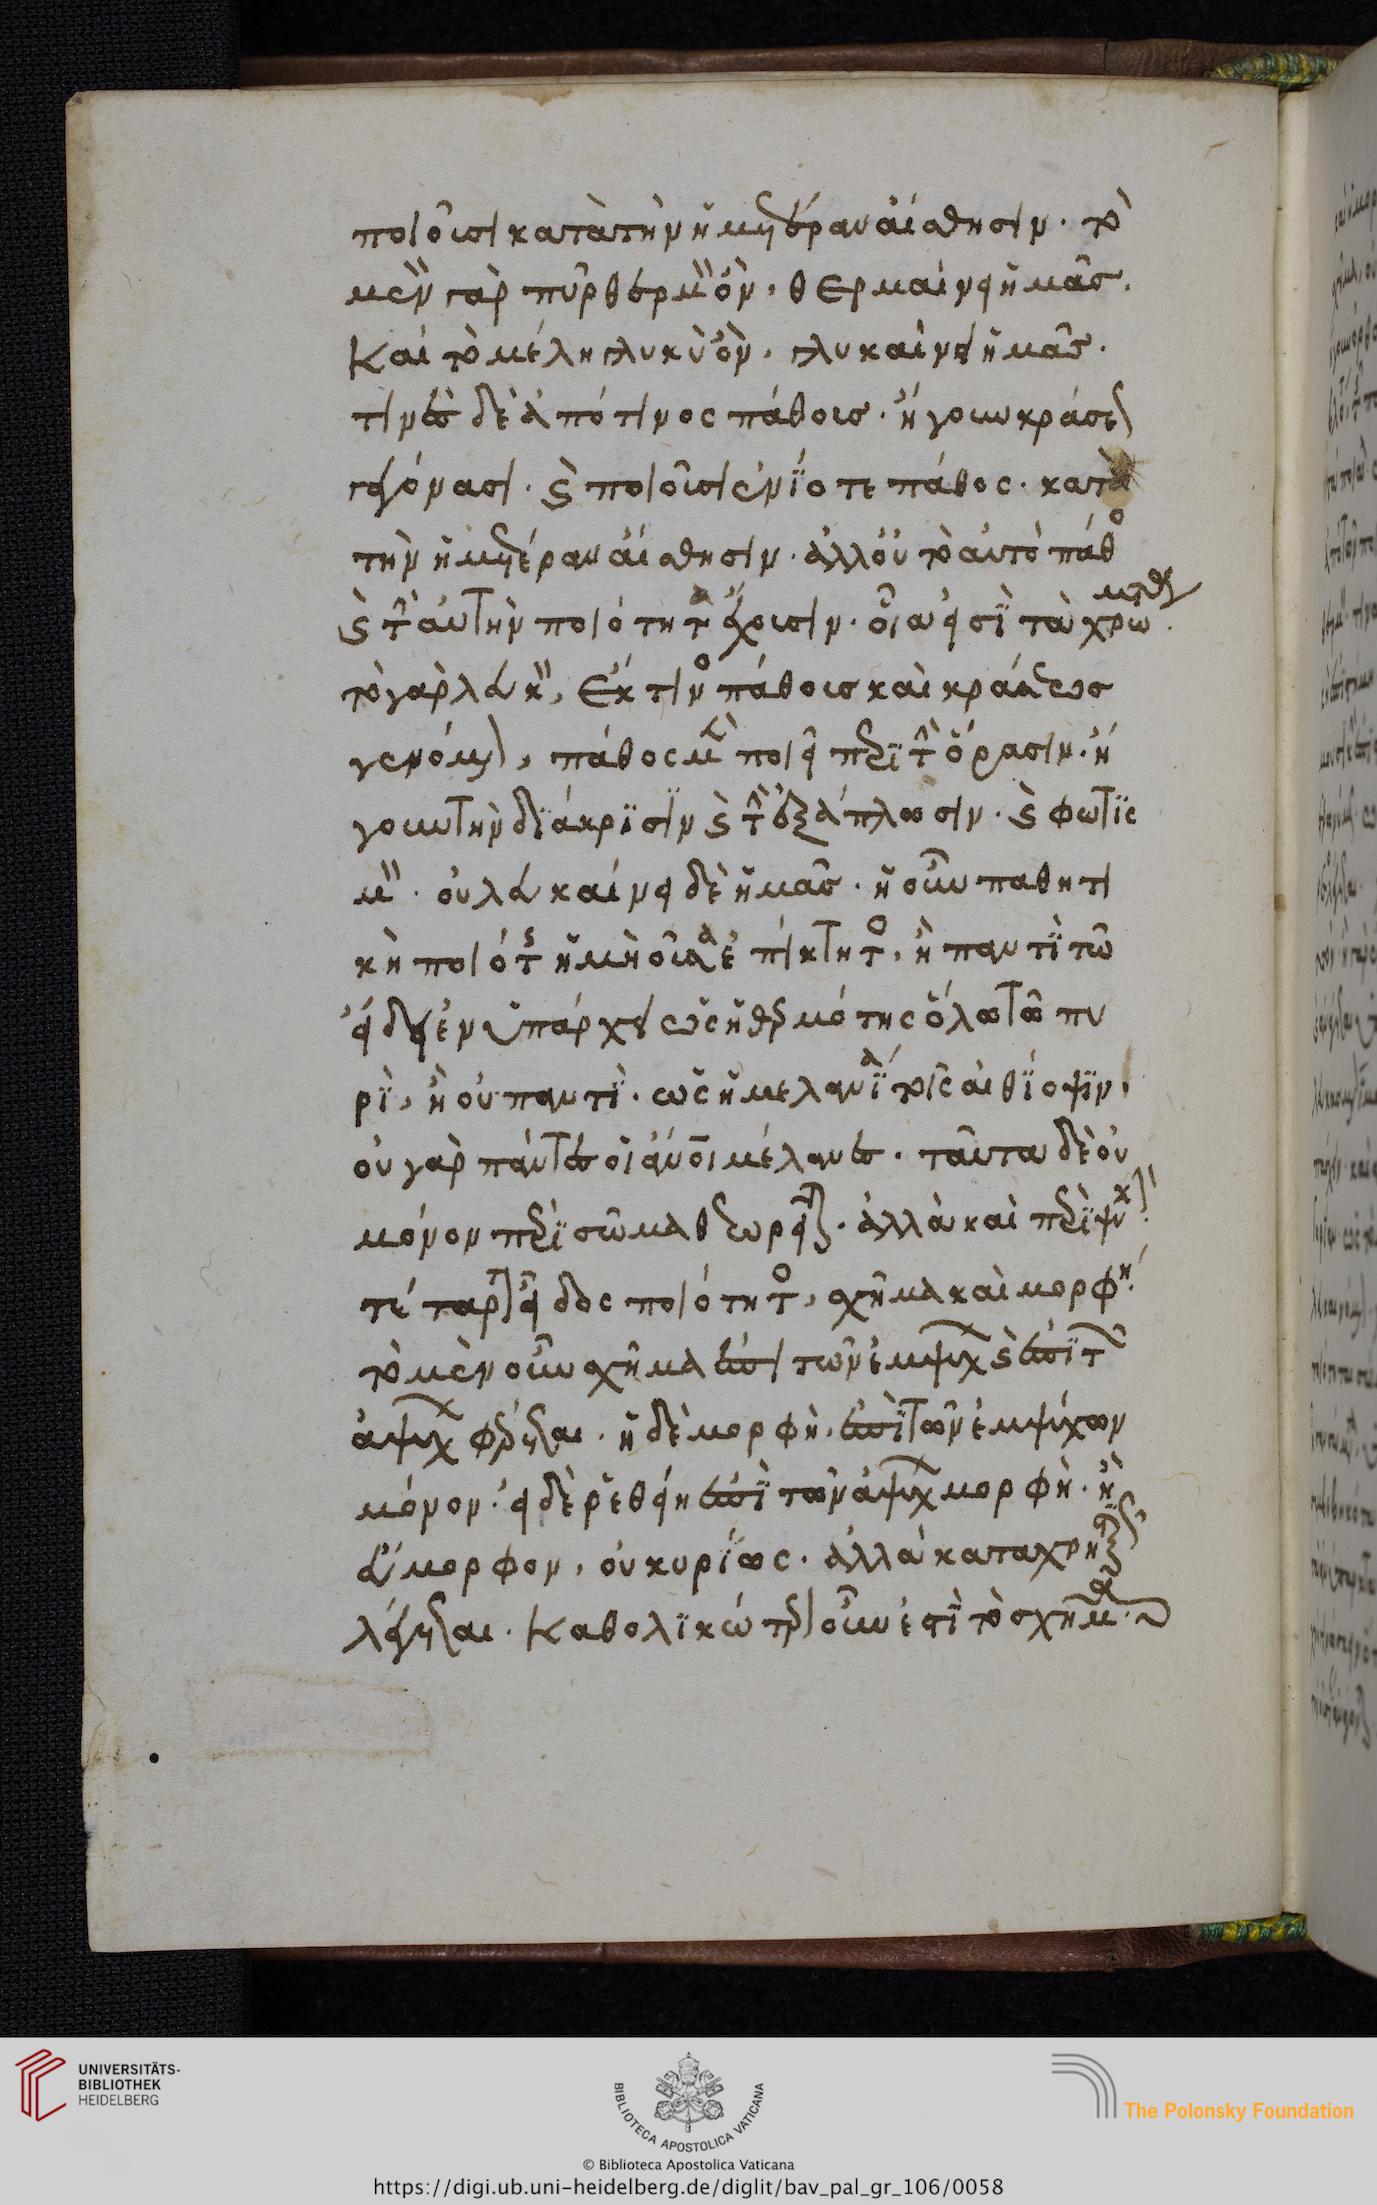 ποιοῦσι κατὰ τὴν ἡμετέραν αἴσθησιν. τὸ
μὲν γὰρ πῦρ θερμὸν ὂν, θερμαίνει ἡμᾶς.
Καὶ τὸ μέλη γλυκὺ ὂν, γλυκαίνει ἡμᾶς.
τινὲς δὲ ἀπό τινος πάθους. ἤγουν κράσεως
γεγόνασι. καὶ ποιοῦσιν ἐνίοτε πάθος. κατὰ
τὴν ἡμετέραν αἴσθησιν. ἀλλ' οὐ τὸ αὐτὸ πάθος
καὶ τὴν αὐτὴν ποιότητα ἔχουσιν. οἷα εἰσὶ τὰ χρώματα
τὸ γὰρ λευκὸν, ἔκ τινος πάθους καὶ κράσεως
γενόμενον, πάθος μὲν ποιεῖ περὶ τὴν ὅρασιν. ἤ
γουν τὴν διάκρισιν καὶ τὴν ἐξάπλωσιν. καὶ φωτισ
μόν. οὐ λευκαίνει δὲ ἡμᾶς. ἡ οὖν παθητι
κὴ ποιότης ἢ μὴ οὖσα ἐπίκτητος, ἢ παντὶ τῷ
εἴδει ἐνυπάρχει ὡς ἡ θερμότης ὅλῳ τῷ πυ
ρὶ, ἢ οὐ παντὶ. ὡς ἡ μελανία τοῖς αἰθίοψιν,
οὐ γὰρ πάντες οἱ ἄνοι μέλανες. ταῦτα δὲ οὐ
μόνον περὶ σῶμα θεωρεῖται. ἀλλὰ καὶ περὶ ψυχήν.
τέταρτον εἶδος ποιότητος, σχῆμα καὶ μορφή.
τὸ μὲν οὖν σχῆμα ἐπὶ τῶν ἐμψύχων καὶ ἐπὶ τῶν
ἀψύχων φέρεται. ἡ δὲ μορφὴ, ἐπὶ τῶν ἐμψύχων
μόνον. εἰ δὲ ῥεθείη ἐπὶ τῶν ἀψύχων μορφὴ. ἢ
εὔμορφον, οὐ κυρίως. ἀλλὰ καταχρηστικῶς
λέγεται. Καθολικώτερον οὖν ἐστὶ τὸ σχῆμα.
UNIVERSITÄTS-
BIBLIOTHEK
HEIDELBERG
BIBLIOTECA APOSTOLICA VATICANA
The Polonsky Foundation
© Biblioteca Apostolica Vaticana
https://digi.ub.uni-heidelberg.de/diglit/bav_pal_gr_106/0058